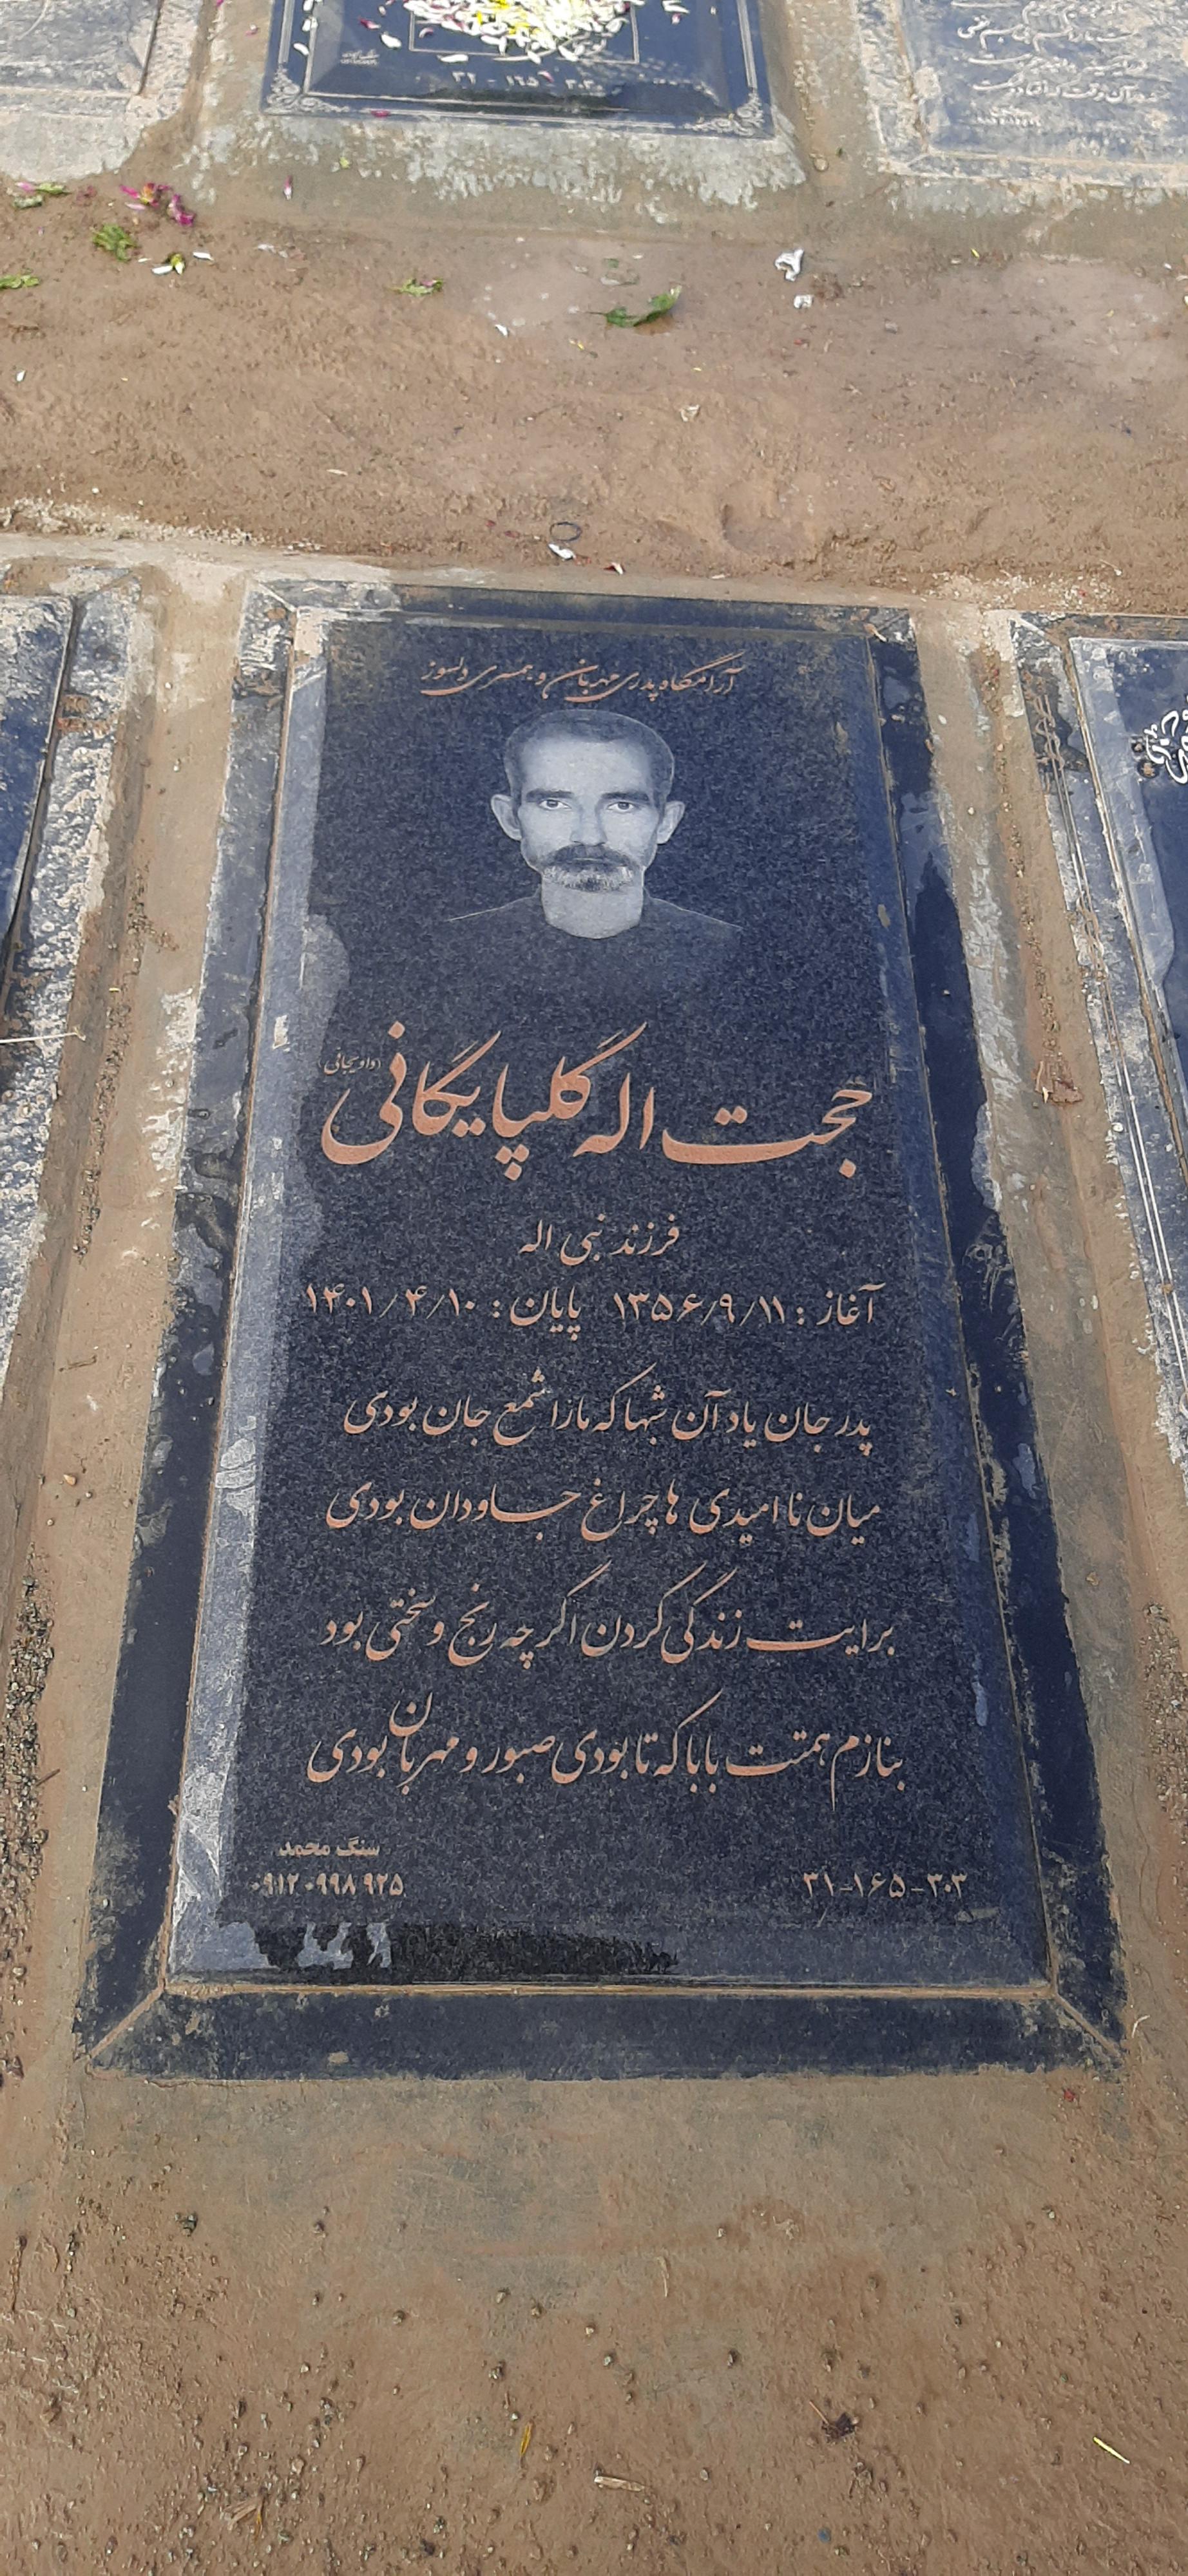 ۳۲ - ۱۶۵ - ۳۰۳
آرامگاه پدری مهربان و همسری دلسوز
حجت اله گلپایگانی (داودیجانی)
فرزند نبی اله
آغاز : ۱۳۵۶/۹/۱۱ پایان : ۱۴۰۱/۴/۱۰
پدر جان یاد آن شبها که ما را شمع جان بودی
میان نا امیدی ها چراغ جاودان بودی
برایت زندگی کردن اگر چه رنج و سختی بود
بنازم همتت بابا که تا بودی صبور و مهربان بودی
سنگ محمد
۰۹۱۲۰۹۹۸۹۲۵
۳۱-۱۶۵-۳۰۳